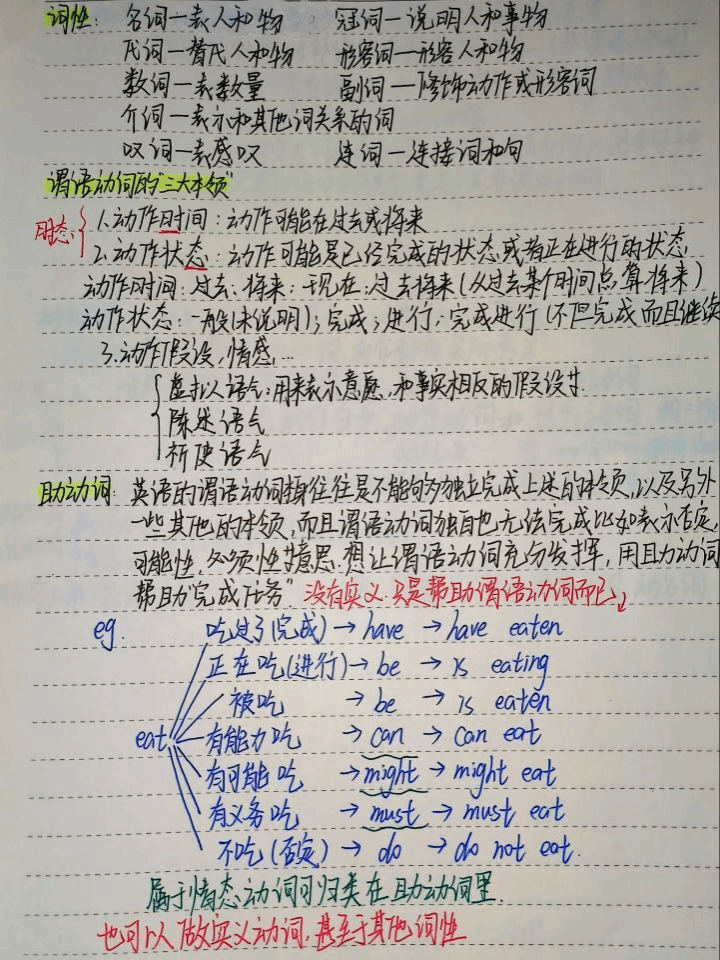 词性: 名词—表人和物 冠词—说明人和事物
代词—替代人和物 形容词—形容人和物
数词—表数量 副词—修饰动作或形容词
介词—表示和其他词关系的词
叹词—表感叹 连词—连接词和句
谓语动词的"三大本领"
时态: 1.动作时间:动作可能在过去或将来
2.动作状态:动作可能是已经完成的状态或者正在进行的状态
动作时间:过去;将来;现在;过去将来(从过去某个时间点算将来)
动作状态:一般(未说明);完成;进行;完成进行(不但完成而且继续
3.动作假设,情感...
虚拟语气:用来表示意愿,和事实相反的假设等
陈述语气
祈使语气
助动词:英语的谓语动词本身往往是不能够独立完成上述的本领,以及另外
一些其他的本领,而且谓语动词独自也无法完成比如表示否定,
可能性,必须性等意思.想让谓语动词充分发挥,用助动词
帮助"完成任务" 没有实义.只是帮助谓语动词而已
eg. 吃过了(完成)→have→have eaten
正在吃(进行)→be→is eating
被吃→be→is eaten
eat 有能力吃→can→can eat
有可能吃→might→might eat
有义务吃→must→must eat
不吃(否定)→do→do not eat.
属于情态动词可归类在助动词里.
也可以做实义动词,甚至于其他词性